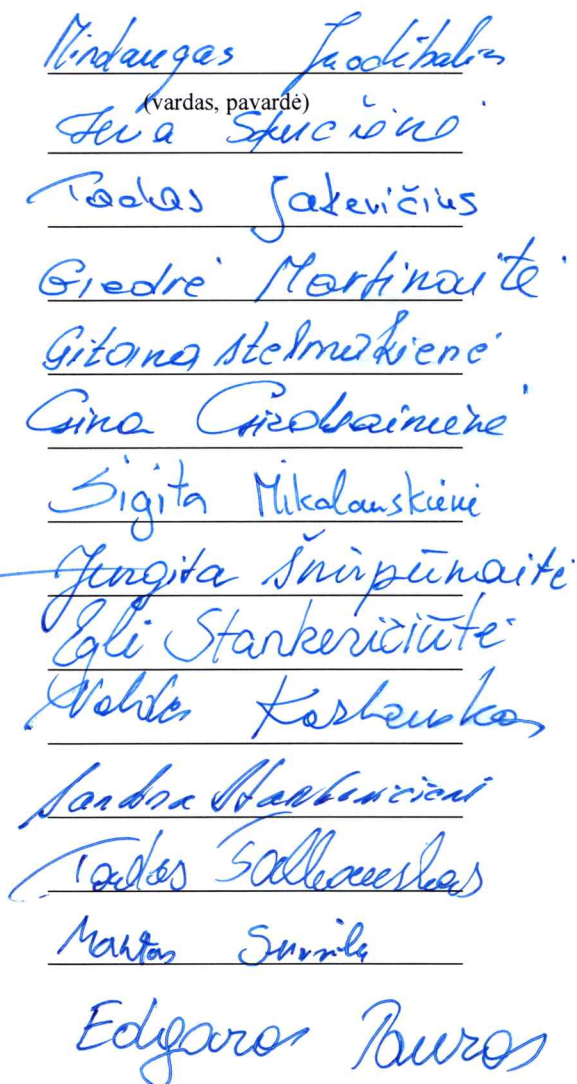 Mindaugas Juodibalis
(vardas, pavardė)
Ieva Skučienė
Tadas Jakevičius
Giedrė Martinaitė
Gitana Stelmokienė
Gina
Sigita Mikalauskienė
Jurgita Šnirpūnaitė
Eglė Stankevičiūtė
Valdas Kazlauskas
Sandra Stankevičienė
Tadas Salkauskas
Mantas Survila
Edgaras Tauras